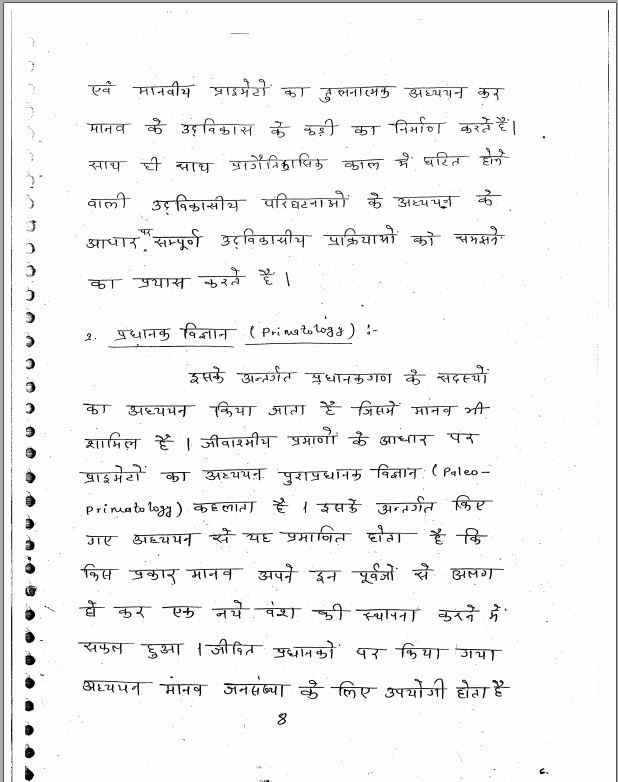 एवं मानवीय प्राइमेटों का तुलनात्मक अध्ययन कर
मानव के उद्विकास के कड़ी का निर्माण करते है।
साथ ही साथ प्रागैतिहासिक काल में घटित होने
वाली उद्विकासीय परिघटनाओं के अध्ययन के
आधार पर सम्पूर्ण उद्विकासीय प्रक्रियाओं को समझने
का प्रयास करते है।
2. प्रधानक विज्ञान (Primatology) :-
इसके अन्तर्गत प्रधानकगण के सदस्यों
का अध्ययन किया जाता है जिसमें मानव भी
शामिल है। जीवाश्मीय प्रमाणों के आधार पर
प्राइमेटों का अध्ययन पुराप्रधानक विज्ञान (Paleo-
Primatology) कहलाता है। इसके अन्तर्गत किए
गए अध्ययन से यह प्रमाणित होता है कि
किस प्रकार मानव अपने इन पूर्वजों से अलग
हो कर एक नये वंश की स्थापना करने में
सफल हुआ। जीवित प्रधानकों पर किया गया
अध्ययन मानव जनसंख्या के लिए उपयोगी होता है
8
6.